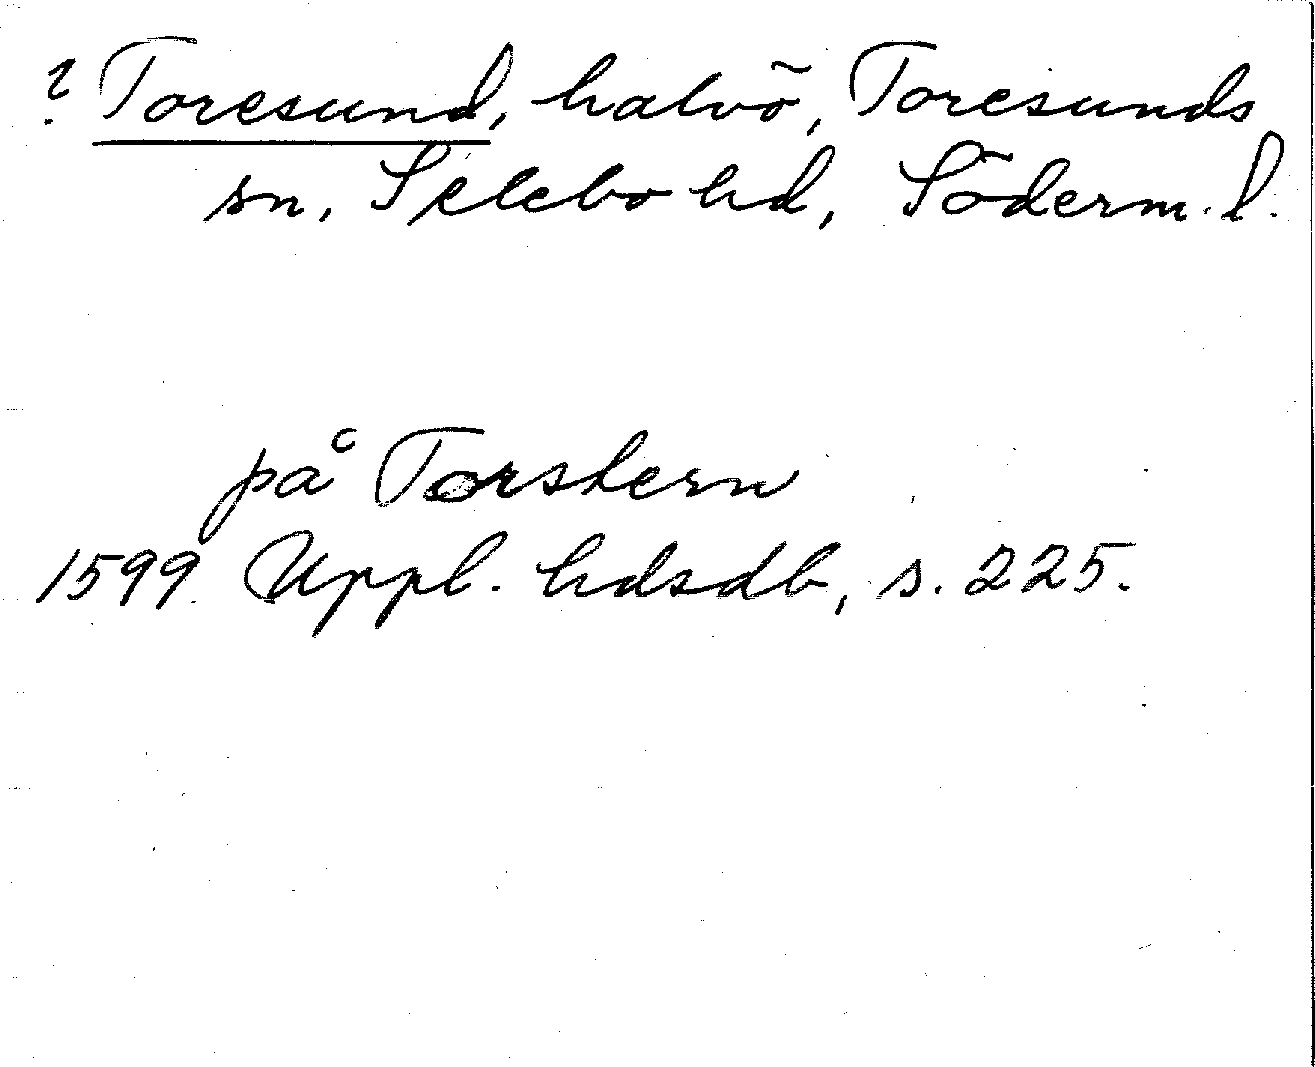 ? Toresund, halvö, Toresunds
sn, Selebo hd, Söderm. l.
på Torstern
1599 Uppl. hdsdb, s. 225.